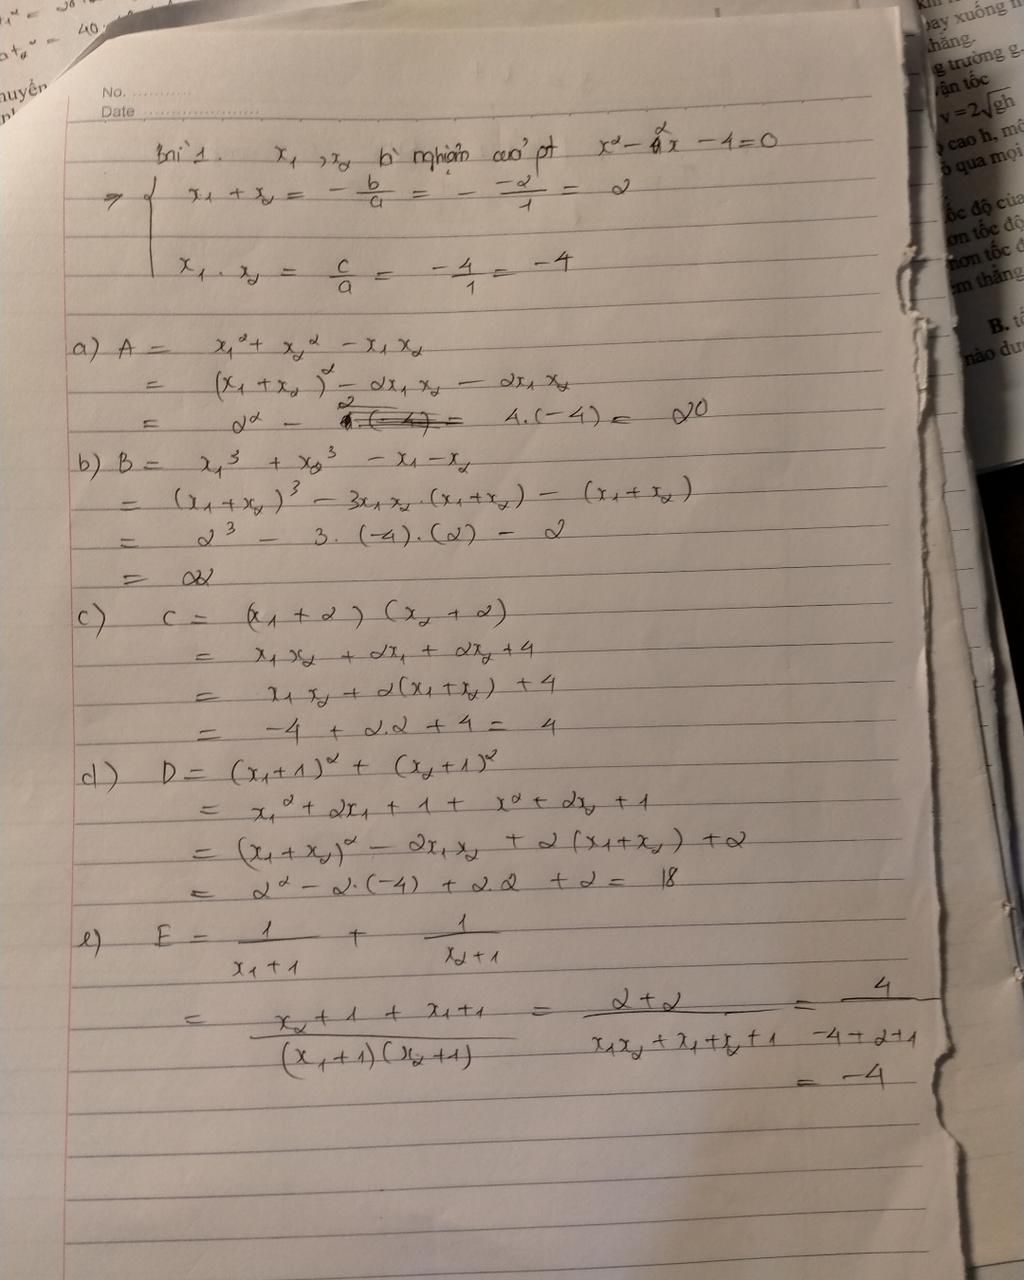 x₁² =
40.
at₂² =
huyển
No. ............
Date ......................
Bài 1. x₁, x₂ là nghiệm của pt x² - 2x - 4 = 0
=> { x₁ + x₂ = - b/a = - -2/1 = 2
x₁ . x₂ = c/a = -4/1 = -4
a) A = x₁² + x₂² - x₁ x₂
= (x₁ + x₂)² - 2x₁ x₂ - 2x₁ x₂
= 2² - 4.(-4) = 20
b) B = x₁³ + x₂³ - x₁ - x₂
= (x₁ + x₂)³ - 3x₁ x₂.(x₁ + x₂) - (x₁ + x₂)
= 2³ - 3.(-4).(2) - 2
=
c) C = (x₁ + 2)(x₂ + 2)
= x₁ x₂ + 2x₁ + 2x₂ + 4
= x₁ x₂ + 2(x₁ + x₂) + 4
= -4 + 2.2 + 4 = 4
d) D = (x₁ + 1)² + (x₂ + 1)²
= x₁² + 2x₁ + 1 + x² + 2x₂ + 1
= (x₁ + x₂)² - 2x₁ x₂ + 2(x₁ + x₂) + 2
= 2² - 2.(-4) + 2.2 + 2 = 18
e) E = 1/(x₁ + 1) + 1/(x₂ + 1)
= (x₂ + 1 + x₁ + 1)/((x₁ + 1)(x₂ + 1)) = (2 + 2)/(x₁x₂ + x₁ + x₂ + 1) = 4/(-4 + 2 + 1)
= -4
bay xuống
thẳng.
g trường g.
vận tốc
v = 2√gh
cao h, mộ
ỏ qua mọi
ốc độ của
ơn tốc độ
hơn tốc đ
ém thẳng
B. tố
nào dư